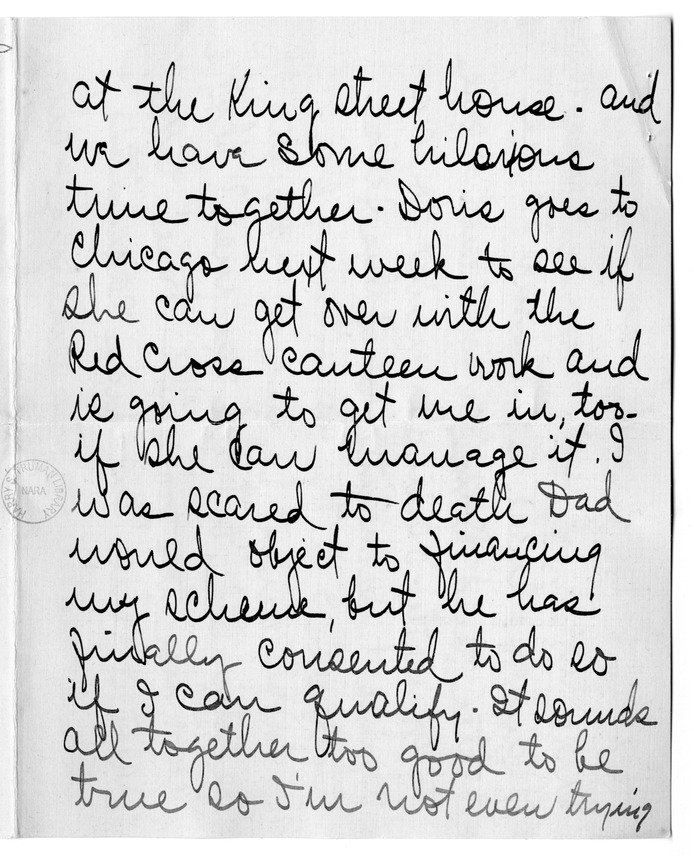 at the King street house. and
we have some hilarious
time together. Doris goes to
Chicago next week to see if
she can get over with the
Red Cross canteen work and
is going to get me in, too-
if she can manage it. I
was scared to death Dad
would object to financing
my scheme, but he has
finally consented to do so
if I can qualify. It sounds
all together too good to be
true so I'm not even trying
HARRY S. TRUMAN LIBRARY
NARA